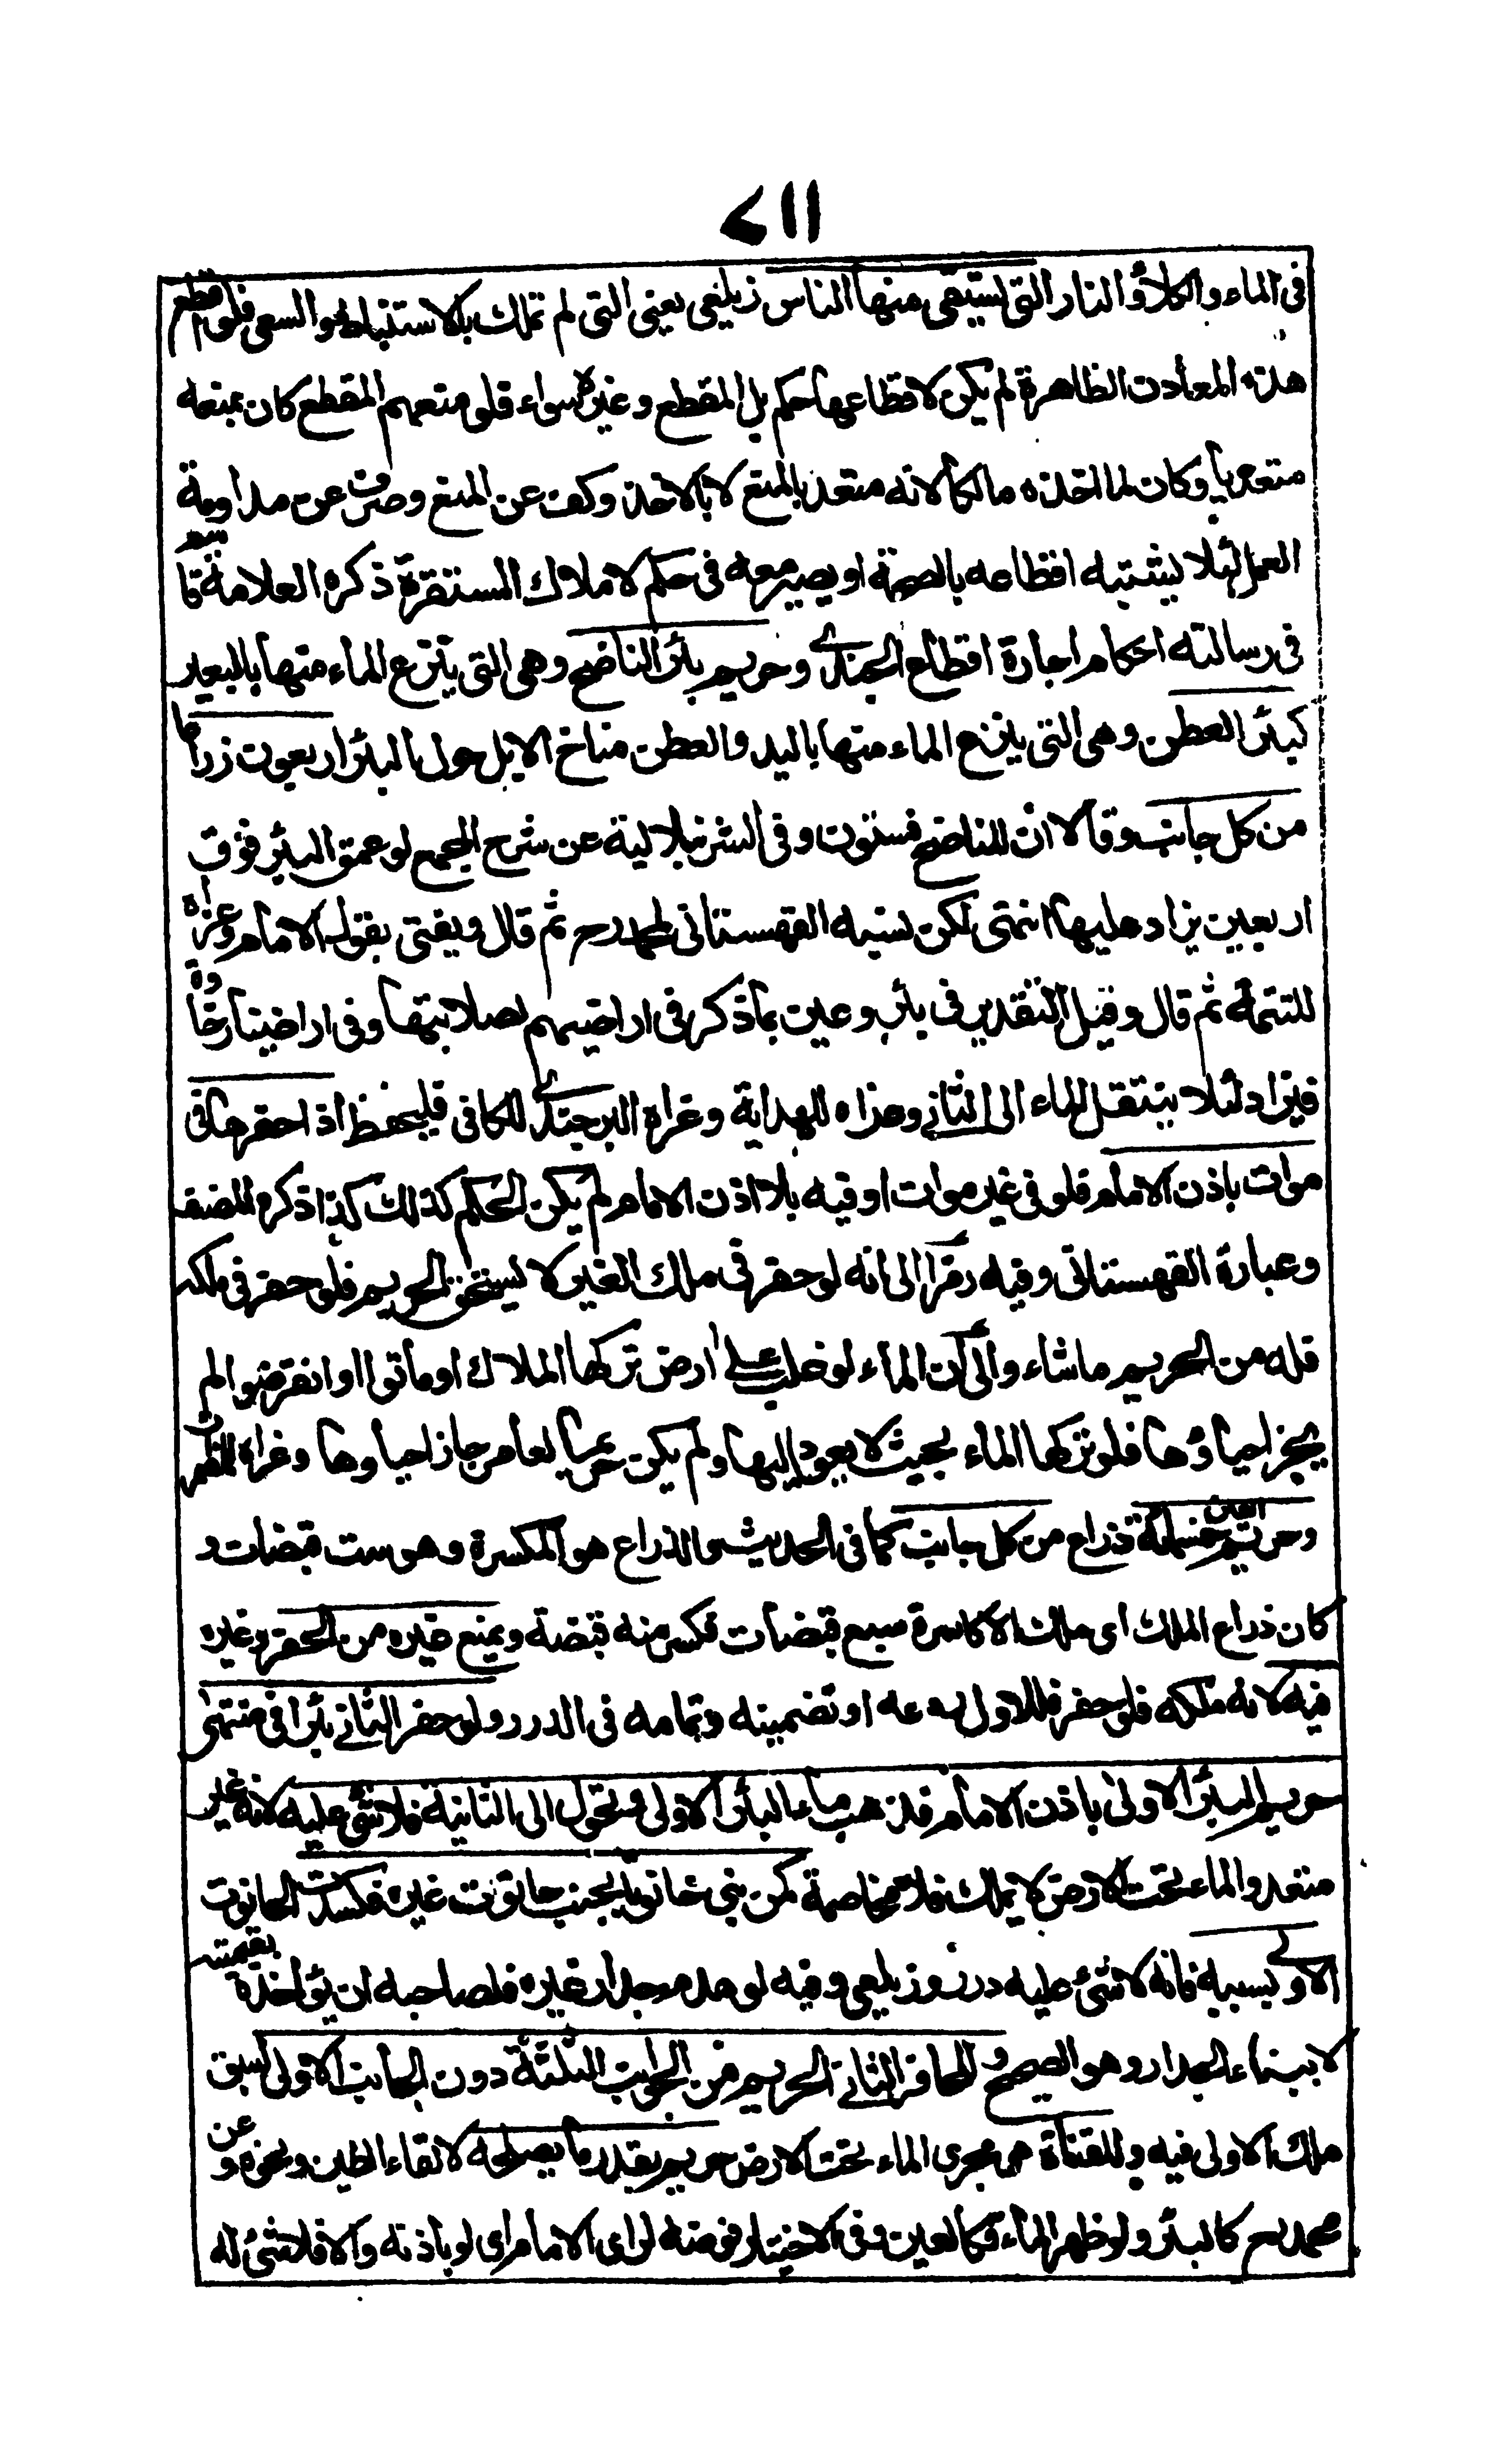 ٧١١
فى الماء والكلأ والنار التى يستقى منها الناس زيلعى يعنى التى لم تملك بالاستنباط والسعى فلو اقطع
هذه المعادن الظاهرة لم يكن لاقطاعها حكم بل المقطع وغيره سواء فلو منعهم المقطع كان بمنعه
متعديا وكان لما اخذه مالكا لانه متعد بالمنع لا بالاخذ وكف عن المنع وصرف عن مداومة
العمل لئلا يشتبه اقطاعه بالصحة او يصير معه فى حكم لاملاك المستقرة ذكره العلامة قاسم
فى رسالته احكام اجارة اقطاع الجندى وحريم بئر الناضح وهى التى ينزع الماء منها بالبعير
كبئر العطن وهى التى ينزع الماء منها باليد والعطن مناخ الابل حول البئر اربعون ذراعا
من كل جانب وقالا ان للناضح فستون وفى الشرنبلالية عن شرح المجمع لو عمق البئر فوق
اربعين يزاد عليها انتهى لكن نسبه القهستانى لمحمد رح ثم قال ويفتى بقول الامام وعزاه
للتتمة ثم قال وقيل التقدير فى بئر وعين بما ذكر فى اراضيهم لصلابتها وفى اراضينا رخاوة
فيزاد لئلا ينتقل الماء الى الثانى وعزاه للهداية وعزاه البرجندى للكافى فليحفظ اذا حفرها فى
موات باذن الامام فلو فى غير موات او فيه بلا اذن الامام لم يكن الحكم كذلك كذا ذكره المصنف
وعبارة القهستانى وفيه رمز الى انه لو حفر فى ملك الغير لا يستحق الحريم فلو حفر فى ملكه
فله من الحريم ما شاء والى ان الماء لو غلب على ارض تركها الملاك او ماتوا او انقرضوا لم
يجز احياؤها فلو تركها الماء بحيث لا يعود اليها ولم يكن حريما لعامر جاز احياوها وعزاه للمضمرات
وحريم العين خمسمائة ذراع من كل جانب كما فى الحديث والذراع هو المكسرة وهو ست قبضات و
كان ذراع الملك اى ملك الاكاسرة سبع قبضات فكسر منه قبضة ويمنع غيره من الحفر وغيره
فيه لانه ملكه فلو حفر فللاول ردمه او تضمينه وتمامه فى الدرر ولو حفر الثانى بئرا فى منتهى
حريم البئر الاولى باذن الامام فذهب ماء البئر الاولى وتحول الى الثانية فلا شئ عليه لانه غير
متعد والماء تحت الارض لا يملك فلا مخاصمة كمن بنى حانوتا بجنب حانوت غيره فكسدت الحانوت
الاولى بسببه فانه لا شئ عليه درر وزيلعى وفيه لو هدم جدار غيره فلصاحبه ان يؤاخذه بقيمته
لا ببناء الجدار وهو الصحيح و للحافر الثانى الحريم من الجوانب الثلثة دون الجانب الاولى لسبق
ملك الاولى فيه وللقناة هى مجرى الماء تحت الارض حريم بقدر ما يصلحه لالقاء الطين ونحوه وعن
محمد رح كالبئر ولو ظهر الماء فكالعين وفى الاختيار فوضه لراى الامام اى لو باذنه والا فلا شئ له